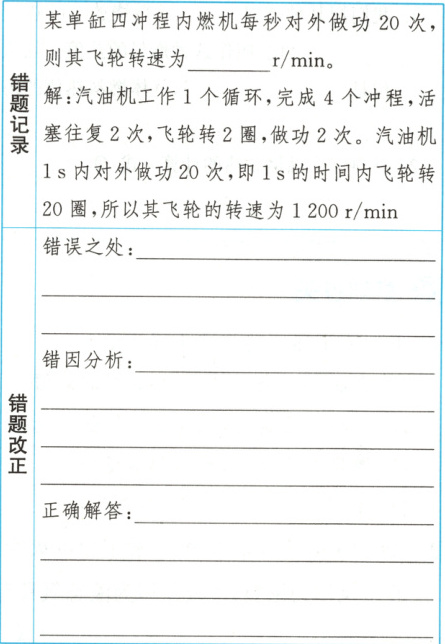 错题记录
某单缸四冲程内燃机每秒对外做功 20 次,
则其飞轮转速为________r/min。
解:汽油机工作 1 个循环,完成 4 个冲程,活
塞往复 2 次,飞轮转 2 圈,做功 2 次。汽油机
1 s 内对外做功 20 次,即 1 s 的时间内飞轮转
20 圈,所以其飞轮的转速为 1 200 r/min
错题改正
错误之处:
错因分析:
正确解答: